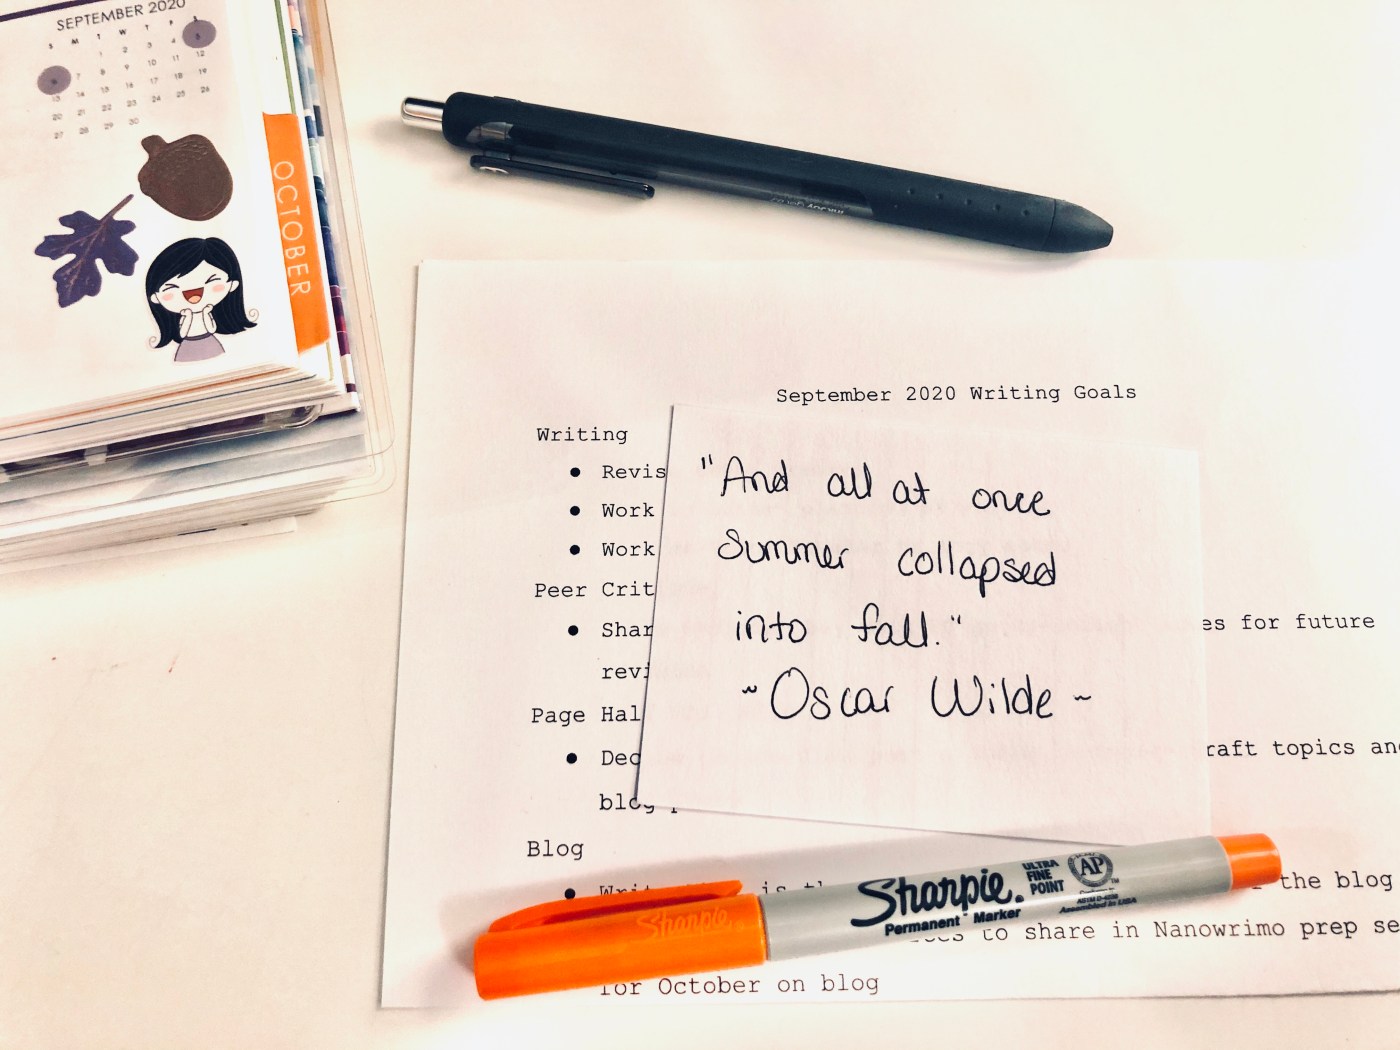 SEPTEMBER 2020
S M T W T F S
1 2 3 4 5
6 7 8 9 10 11 12
13 14 15 16 17 18 19
20 21 22 23 24 25 26
27 28 29 30
OCTOBER
September 2020 Writing Goals
Writing
Revis
Work
Work
Peer Crit
Shar es for future
revi
Page Hal
Dec raft topics and
blog p
Blog
Writ is th the blog
to share in Nanowrimo prep se
for October on blog
"And all at once
summer collapsed
into fall."
~ Oscar Wilde ~
Sharpie
Sharpie.
Permanent Marker
ULTRA
FINE
POINT
AP
Assembled in USA